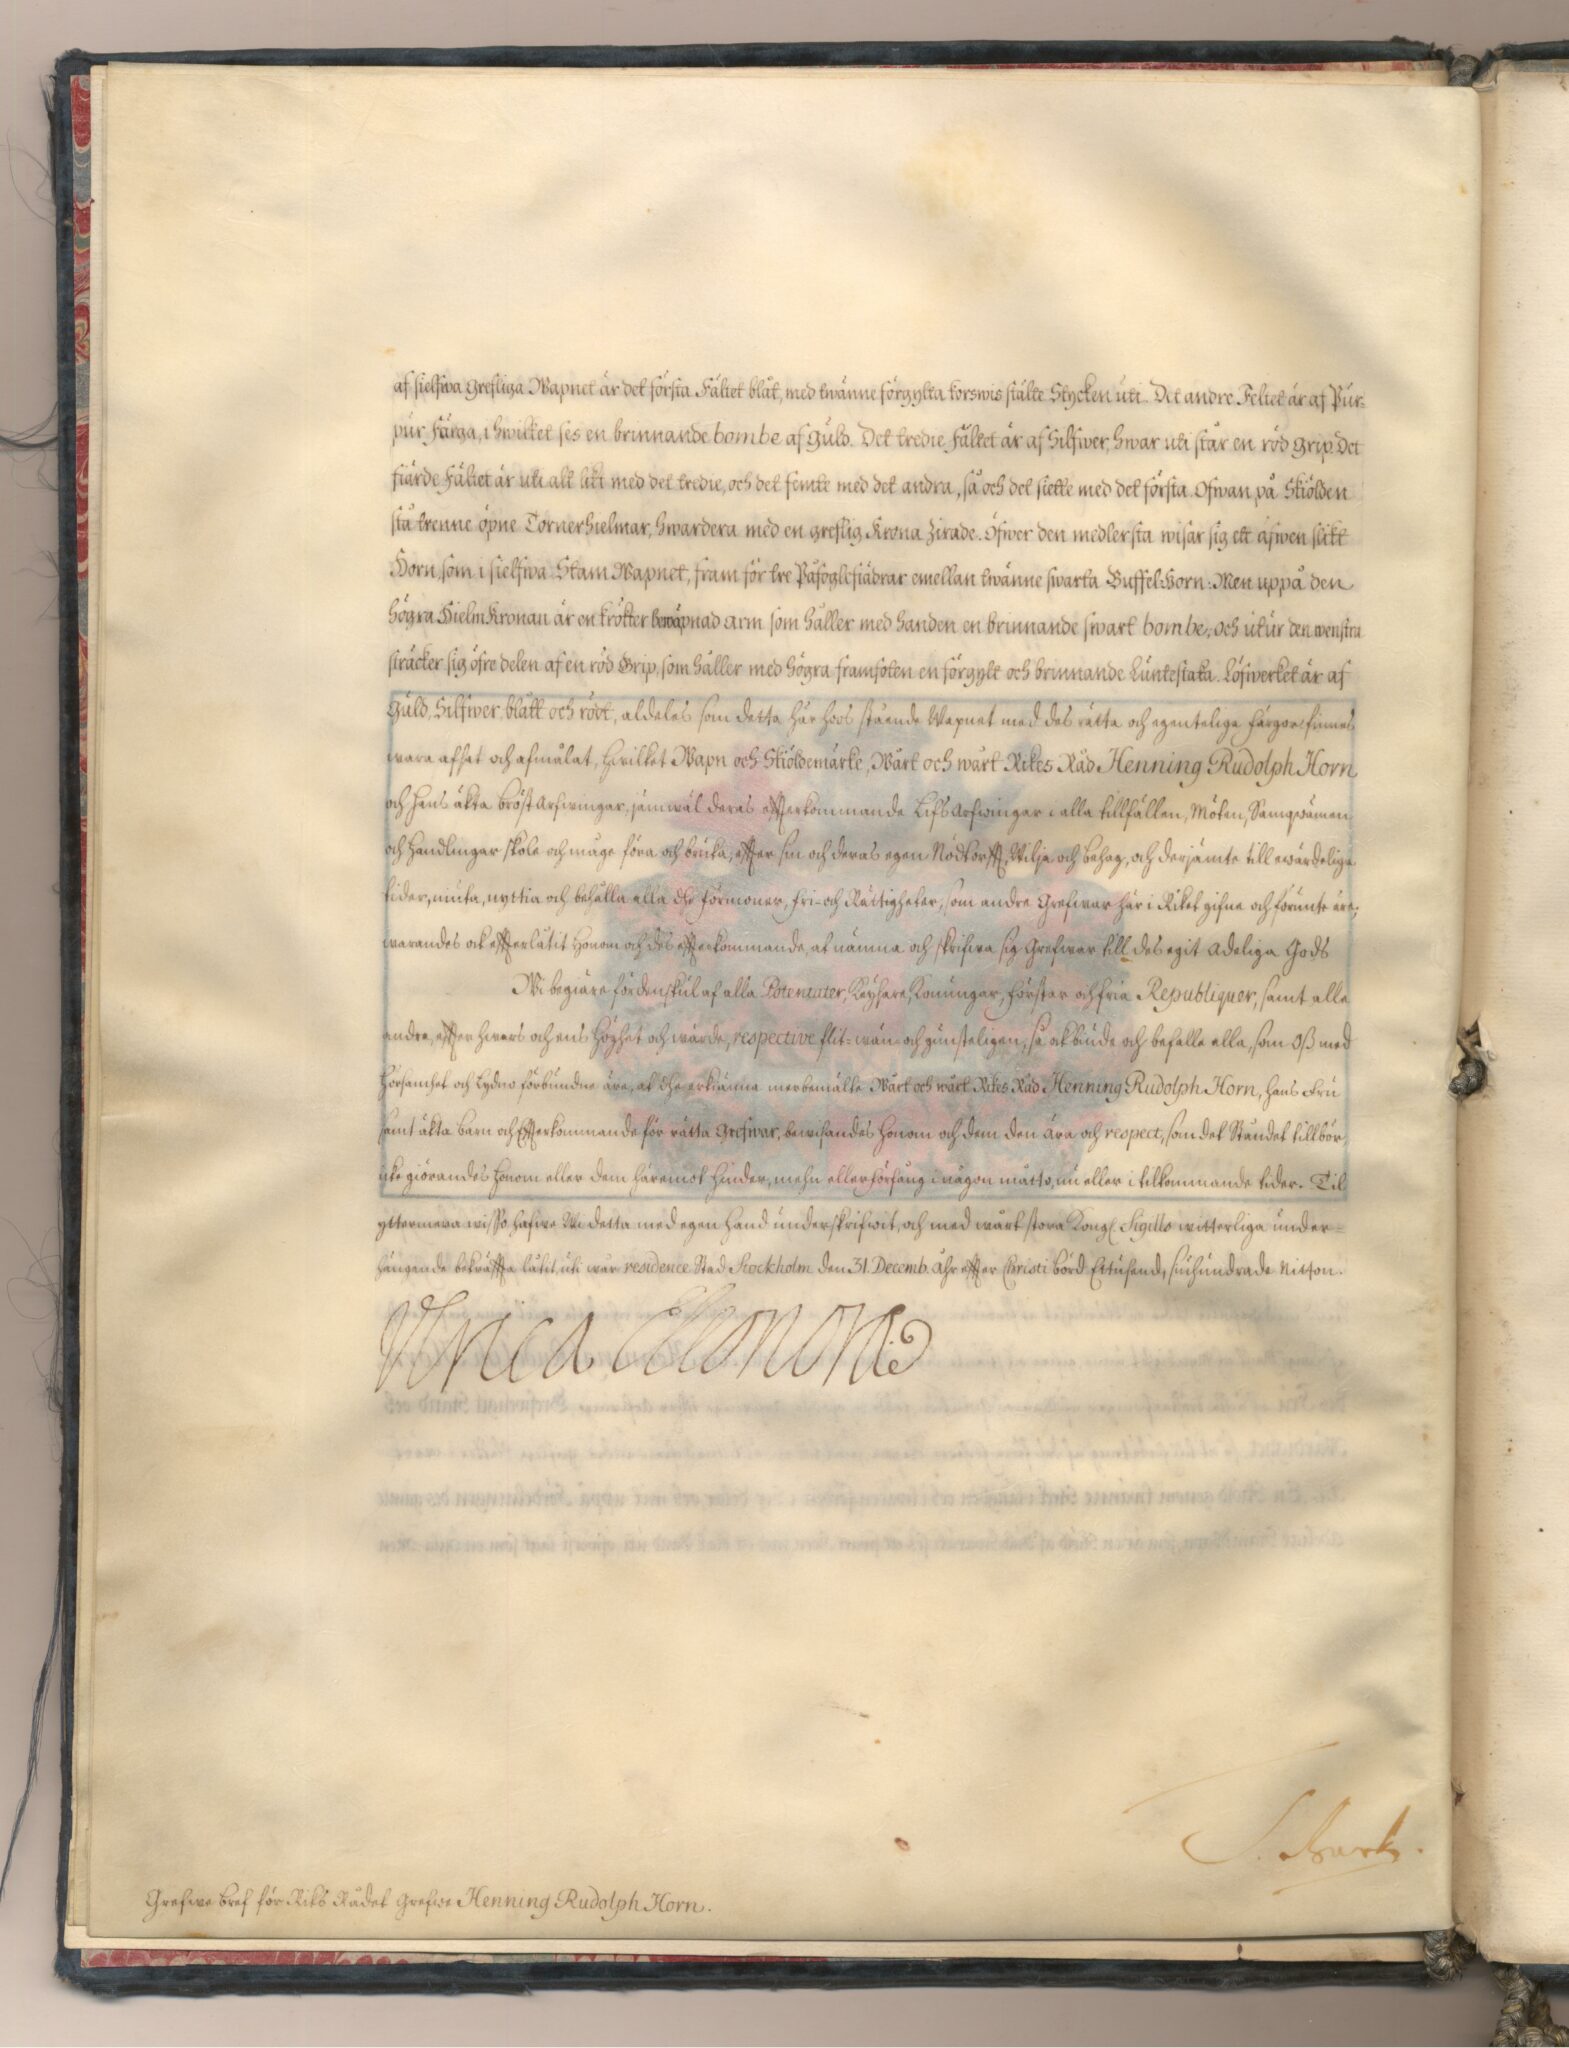 af sielfwa grefliga Wapnet är det första Fältet blåt, med twänne förgylta korswis stälte Stycken uti. Det andre Feltet är af Pur-
pur Färga, i hwilket ses en brinnande bombe af Guld. Det tredie Fältet är af Silfwer, hwar uti står en röd Grip. Det
fiärde Fältet är uti alt likt med det tredie, och det femte med det andra, så och det siette med det första. Ofwan på Skiölden
stå trenne öpne Tornerhielmar, hwardera med en greflig Krona Zirade. Öfwer den medlersta wisar sig ett äfwen slikt
Horn, som i sielfwa Stam Wapnet, fram för tre Påfoglefiädrar emellan twänne swarta Buffel-Horn: Men uppå den
högra Hielm Kronan är en krökter bewäpnad arm som håller med handen en brinnande swart bombe, och utur den wenstra
sträcker sig öfre delen af en röd Grip, som håller med högra framfoten en förgylt och brinnande Luntestaka. Löfwerket är af
Guld, Silfwer, blått och rödt, aldeles som detta här hoos stående Wapnet med des rätta och egentelige färgor finnes
wara afsat och afmålat, Hwilket Wapn och Skiöldemärke, Wårt och wårt Rikes Råd Henning Rudolph Horn
och hans äkta bröst Arfwingar, jämwäl deras effterkommande Lifs Arfwingar i alla tillfällen, Möten, Samqwämen
och Handlingar skole och måge föra och bruka, effter sin och deras egen Nödtorfft, Wilja och behag, och derjämte till ewärdeliga
tider, niuta, nyttia och behålla alla dhe förmoner, fri- och Rättigheter, som andre Grefwar här i Riket gifne och förunte äre;
warandes ock effterlåtit Honom och des effterkommande, at nämna och skrifwa sig Grefwar till des egit Adeliga Gods
Wi begiäre fördenskul af alla Potentater, Keysare, Konungar, Förstar och fria Republiquer, samt alle
andre, effter hwars och ens Höghet och wärde, respective flit- wän- och gunsteligen, så ock biude och befalle alla, som Oß med
Hörsamhet och Lydno förbundne äre, at dhe erkiänna merbemälte Wårt och wårt Rikes Råd Henning Rudolph Horn, hans Fru
samt äkta barn och Effterkommande för rätta Grefwar, bewisandes Honom och dem den ära och respect, som det Ståndet tillbör,
icke giörandes Honom eller dem häremot hinder, mehn eller förfång i någon måtto, nu eller i tilkommande tider. Til
yttermera wisso hafwe Wi detta med egen Hand underskrifwit, och med wårt stora Kongl. Sigillo witterliga under-
hängande bekräffta låtit, uti wår residence Stad Stockholm den 31. Decemb. åhr effter Christi börd Ettusend, siuhundrade Nitton.
Ulrica Eleonora
S. Bark.
Grefwe bref för Riks Rådet Grefwe Henning Rudolph Horn.